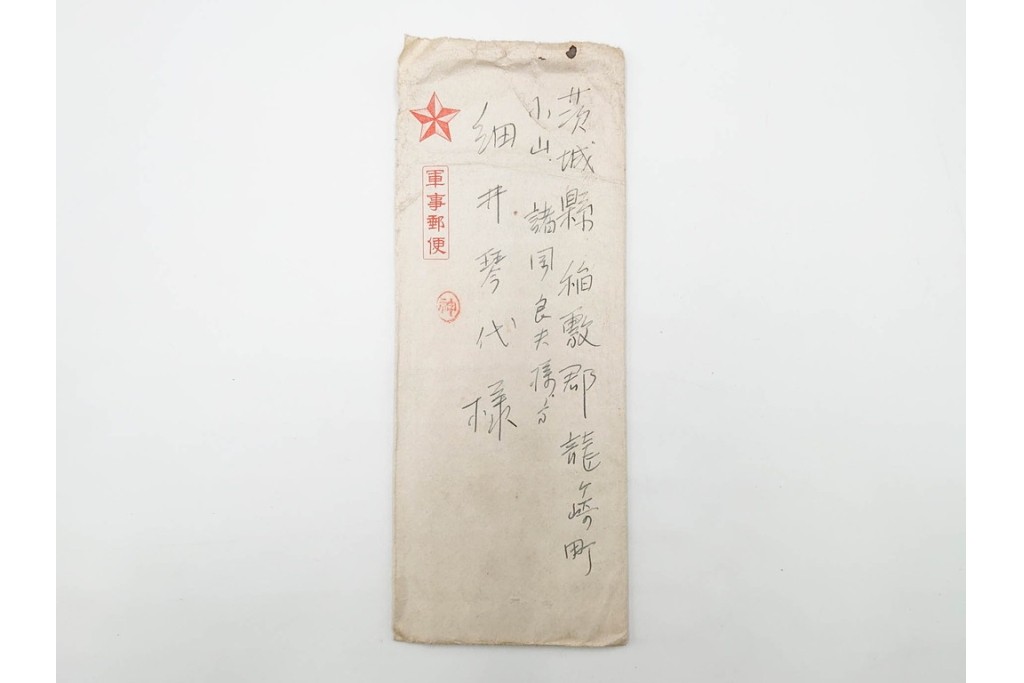 茨城縣稲敷郡龍ヶ崎町
小山、諸岡良夫様方
細井琴代様
軍事郵便
神